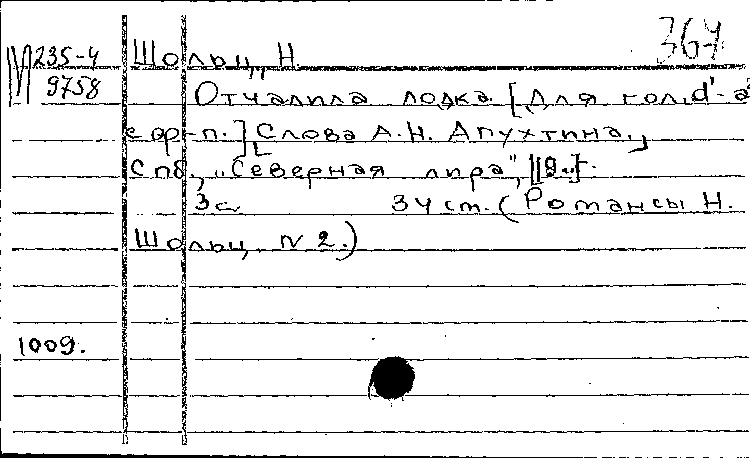 М 235-4 Шольц, Н. 364
9758 Отчалила лодка. [Для гол. d'-a
с фр-п.] Слова А.Н. Апухтина.
Спб., "Северная лира", [19..].
3 с. 34 ст. (Романсы Н.
Шольц, N 2.)
1009.